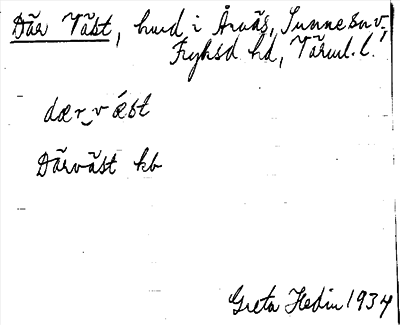 Där Väst, hmd i Årnäs, Sunne sn v,
Fryksd hd, Värml. l.
dær‿v ǽst
Därväst kb
Greta Hedin 1934